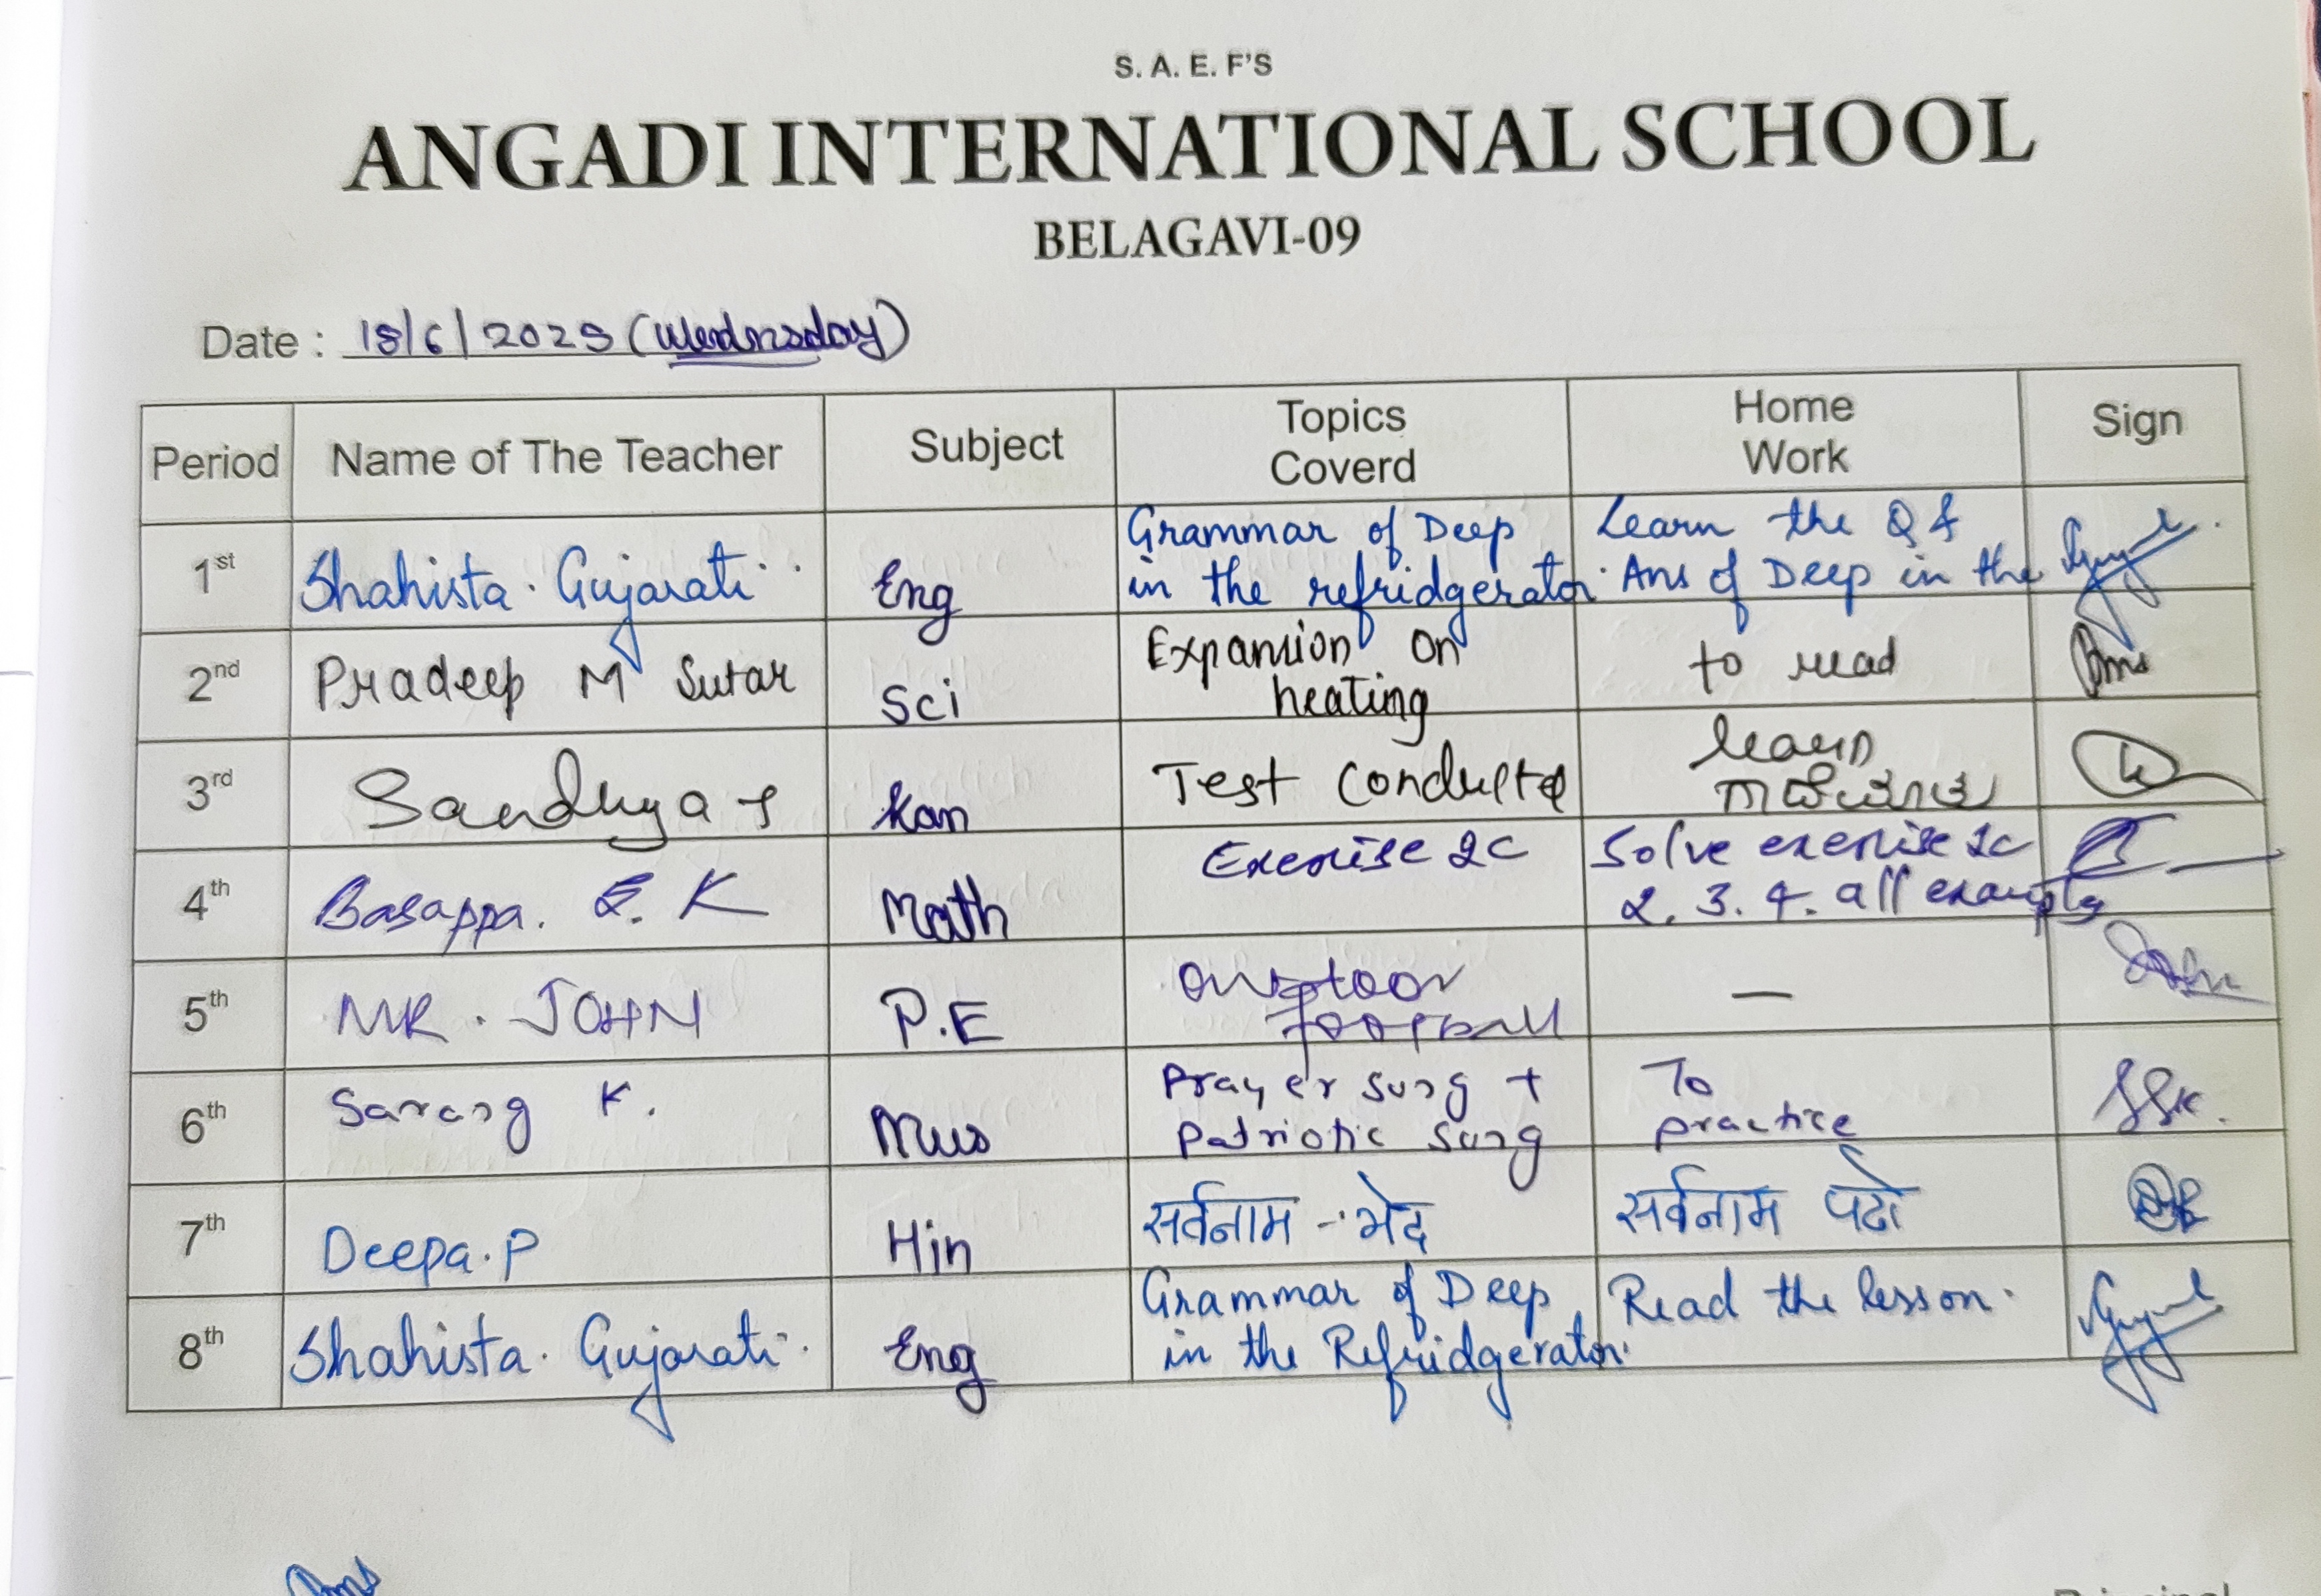 S. A. E. F'S
ANGADI INTERNATIONAL SCHOOL
BELAGAVI-09
Date : 18/6/2025 (Wednesday)
Period Name of The Teacher Subject Topics Coverd Home Work Sign
1st Shahista. Gujarati. Eng Grammar of Deep in the refridgerator. Learn the Q & Ans of Deep in the
2nd Pradeep M Sutar Sci Expansion on heating to read
3rd Sandhya S Kan Test Conducted learn
4th Basappa. K Math Exercise 2C Solve exercise 2C 2. 3. 4. all
5th MR. JOHN P.E football —
6th Sarang K. Mus Prayer song + Patriotic song To practice SSK.
7th Deepa.P Hin सर्वनाम - भेद सर्वनाम पढो
8th Shahista. Gujarati. Eng Grammar of Deep in the Refridgerator. Read the lesson.